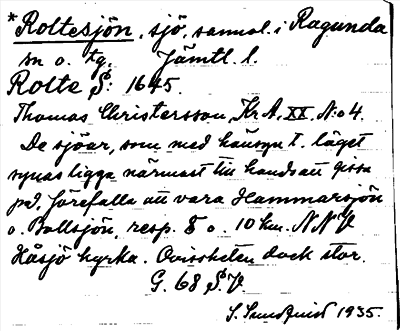 *Roltesjön, sjö, samml. i Ragunda
sn o. tg. Jämtl. l.
Rolte S: 1645.
Thomas Christersson, Kr A. XX. N:o 4.
De sjöar, som med hänsyn t. läget
synas ligga närmast till hands att gissa
på, förefalla att vara Hammarsjön
o. Bollsjön, resp. 8 o. 10 km. NNV
Häsjö kyrka. Ovissheten dock stor.
G. 68 S.V.
S. Sundquist 1935.